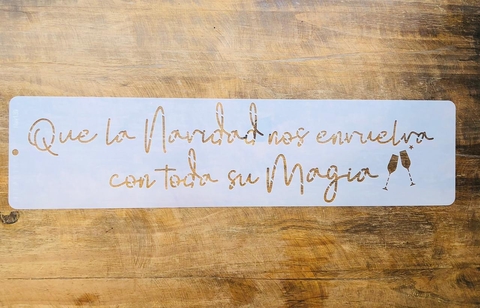 Que la Navidad nos envuelva
con toda su Magia